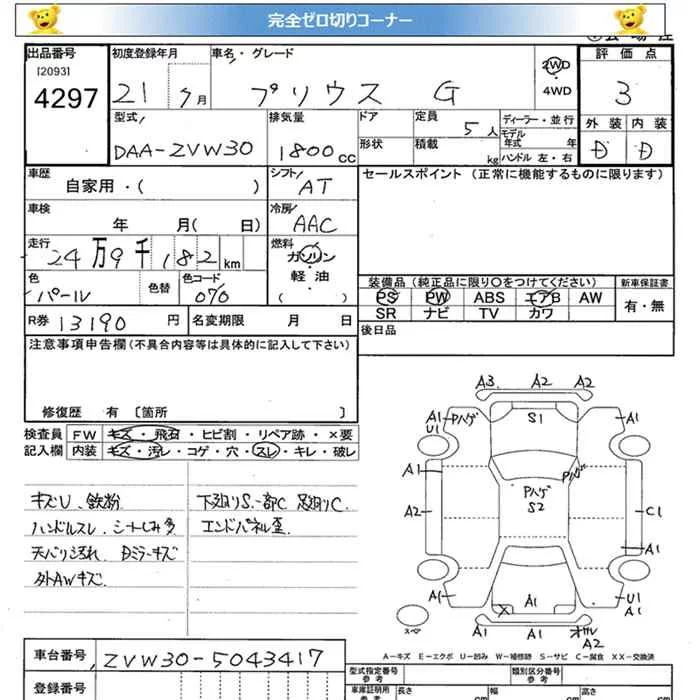 完全ゼロ切りコーナー
出品番号 初度登録年月 車名・グレード 2WD 4WD 評価点
[2093]
4297 21 7月 プリウス G 3
型式 排気量 ドア 定員 ディーラー・並行 外装 内装
DAA-ZVW30 1800cc 5人 モデル年式 年 D D
形状 積載 kg ハンドル 左・右
車歴 シフト セールスポイント(正常に機能するものに限ります)
自家用・( ) AT
車検 冷房
年 月( 日) AAC
走行 燃料
24万9千182km ガソリン・軽油 ( )
色 色替 色コード 装備品(純正品に限り〇をつけてください) 新車保証書
パール 070 PS PW ABS エアB AW 有・無
SR ナビ TV カワ
R券 13190円 名変期限 月 日 後日品
注意事項申告欄(不具合内容等は具体的に記入して下さい)
修復歴 有 〔箇所 〕
検査員 FW キズ・飛石・ヒビ割・リペア跡・×要
記入欄 内装 キズ・汚レ・コゲ・穴・スレ・キレ・破レ
キズU、鉄粉
ハンドルスレ、シートしみ多
天バリ汚れ、Dミラーキズ
外AWキズ
下廻りS、一部C 足廻りC
エンドパネル歪
A3 A2 A2
A1 Pハゲ S1 A1
U1
Pハゲ
A1 Pハゲ
A2 S2 C1
A1
A1 X A1 U1
A1
スペア A1 A1 A2
A-キズ E-エクボ U-凹み W-補修跡 S-サビ C-腐食 XX-交換済
車台番号 ZVW30-5043417
登録番号
型式指定番号 参考 類別区分番号 参考
車庫証明用 参考 長さ cm 幅 cm 高さ cm